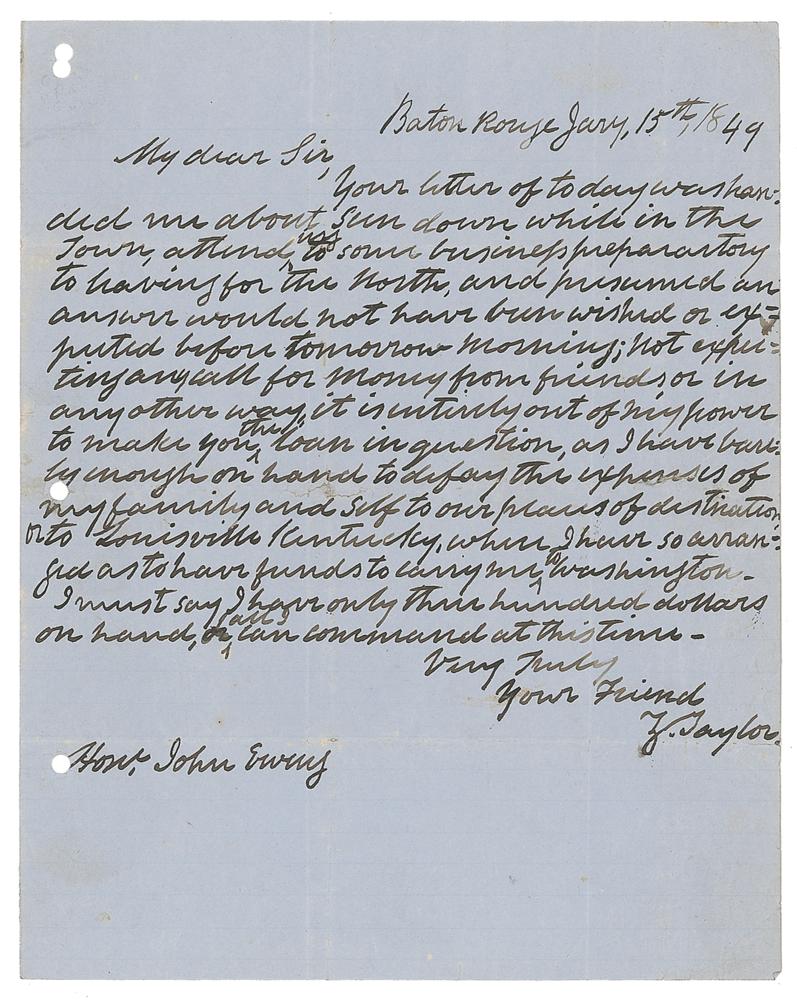 Baton Rouge Jary, 15th, 1849
My dear Sir,
Your letter of to day was han-
ded me about sun down while in the
Town, attending to some business preparatory
to leaving for the North, and presumed an
answer would not have been wished or ex=
pected before tomorrow morning; not expec-
ting any call for money from friends or in
any other way, it is entirely out of my power
to make you the loan in question, as I have bare=
ly enough on hand to defray the expenses of
my family and self to our places of destination
or to Louisville Kentucky, where I have so arran-
ged as to have funds to carry me to Washington -
I must say I have only three hundred dollars
on hand, or all I can command at this time -
Very Truly
Your Friend
Z. Taylor.
Honr. John Ewing